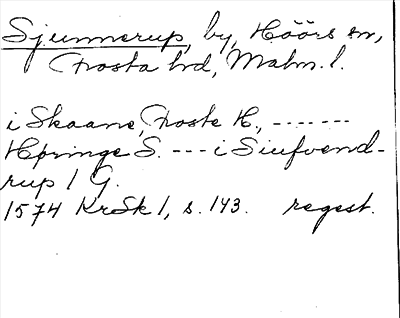 Sjunnerup, by, Höörs sn,
Frosta hd, Malm. l.
i Skaane, Froste H., -------
Hpringe S. --- i Siufvend-
rup 1 G.
1574 KrSk 1, s. 143. regest.